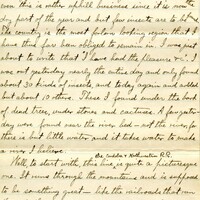 even this is rather uphill business since it is now
dry part of the year and but few insects are to be
The country is the most forlorn looking region that I
have thus far been obliged to remain in. I was just
about to write that I have had the pleasure &c. I
was out yesterday nearly the entire day and only found
about 30 kinds of insects, and today again and added
but about 10 others. These I found under the bark
of dead trees, under stones and cactuses. A few water
dry were found near the river bed – not the river, for
there is but little water, and it takes water to make
a river I believe.
the Oaxaca & Nothwestern R.R.
Well, to start with, this line is quite a picturesque
one. It runs through the mountains and is supposed
to be something great – like the railroads that run